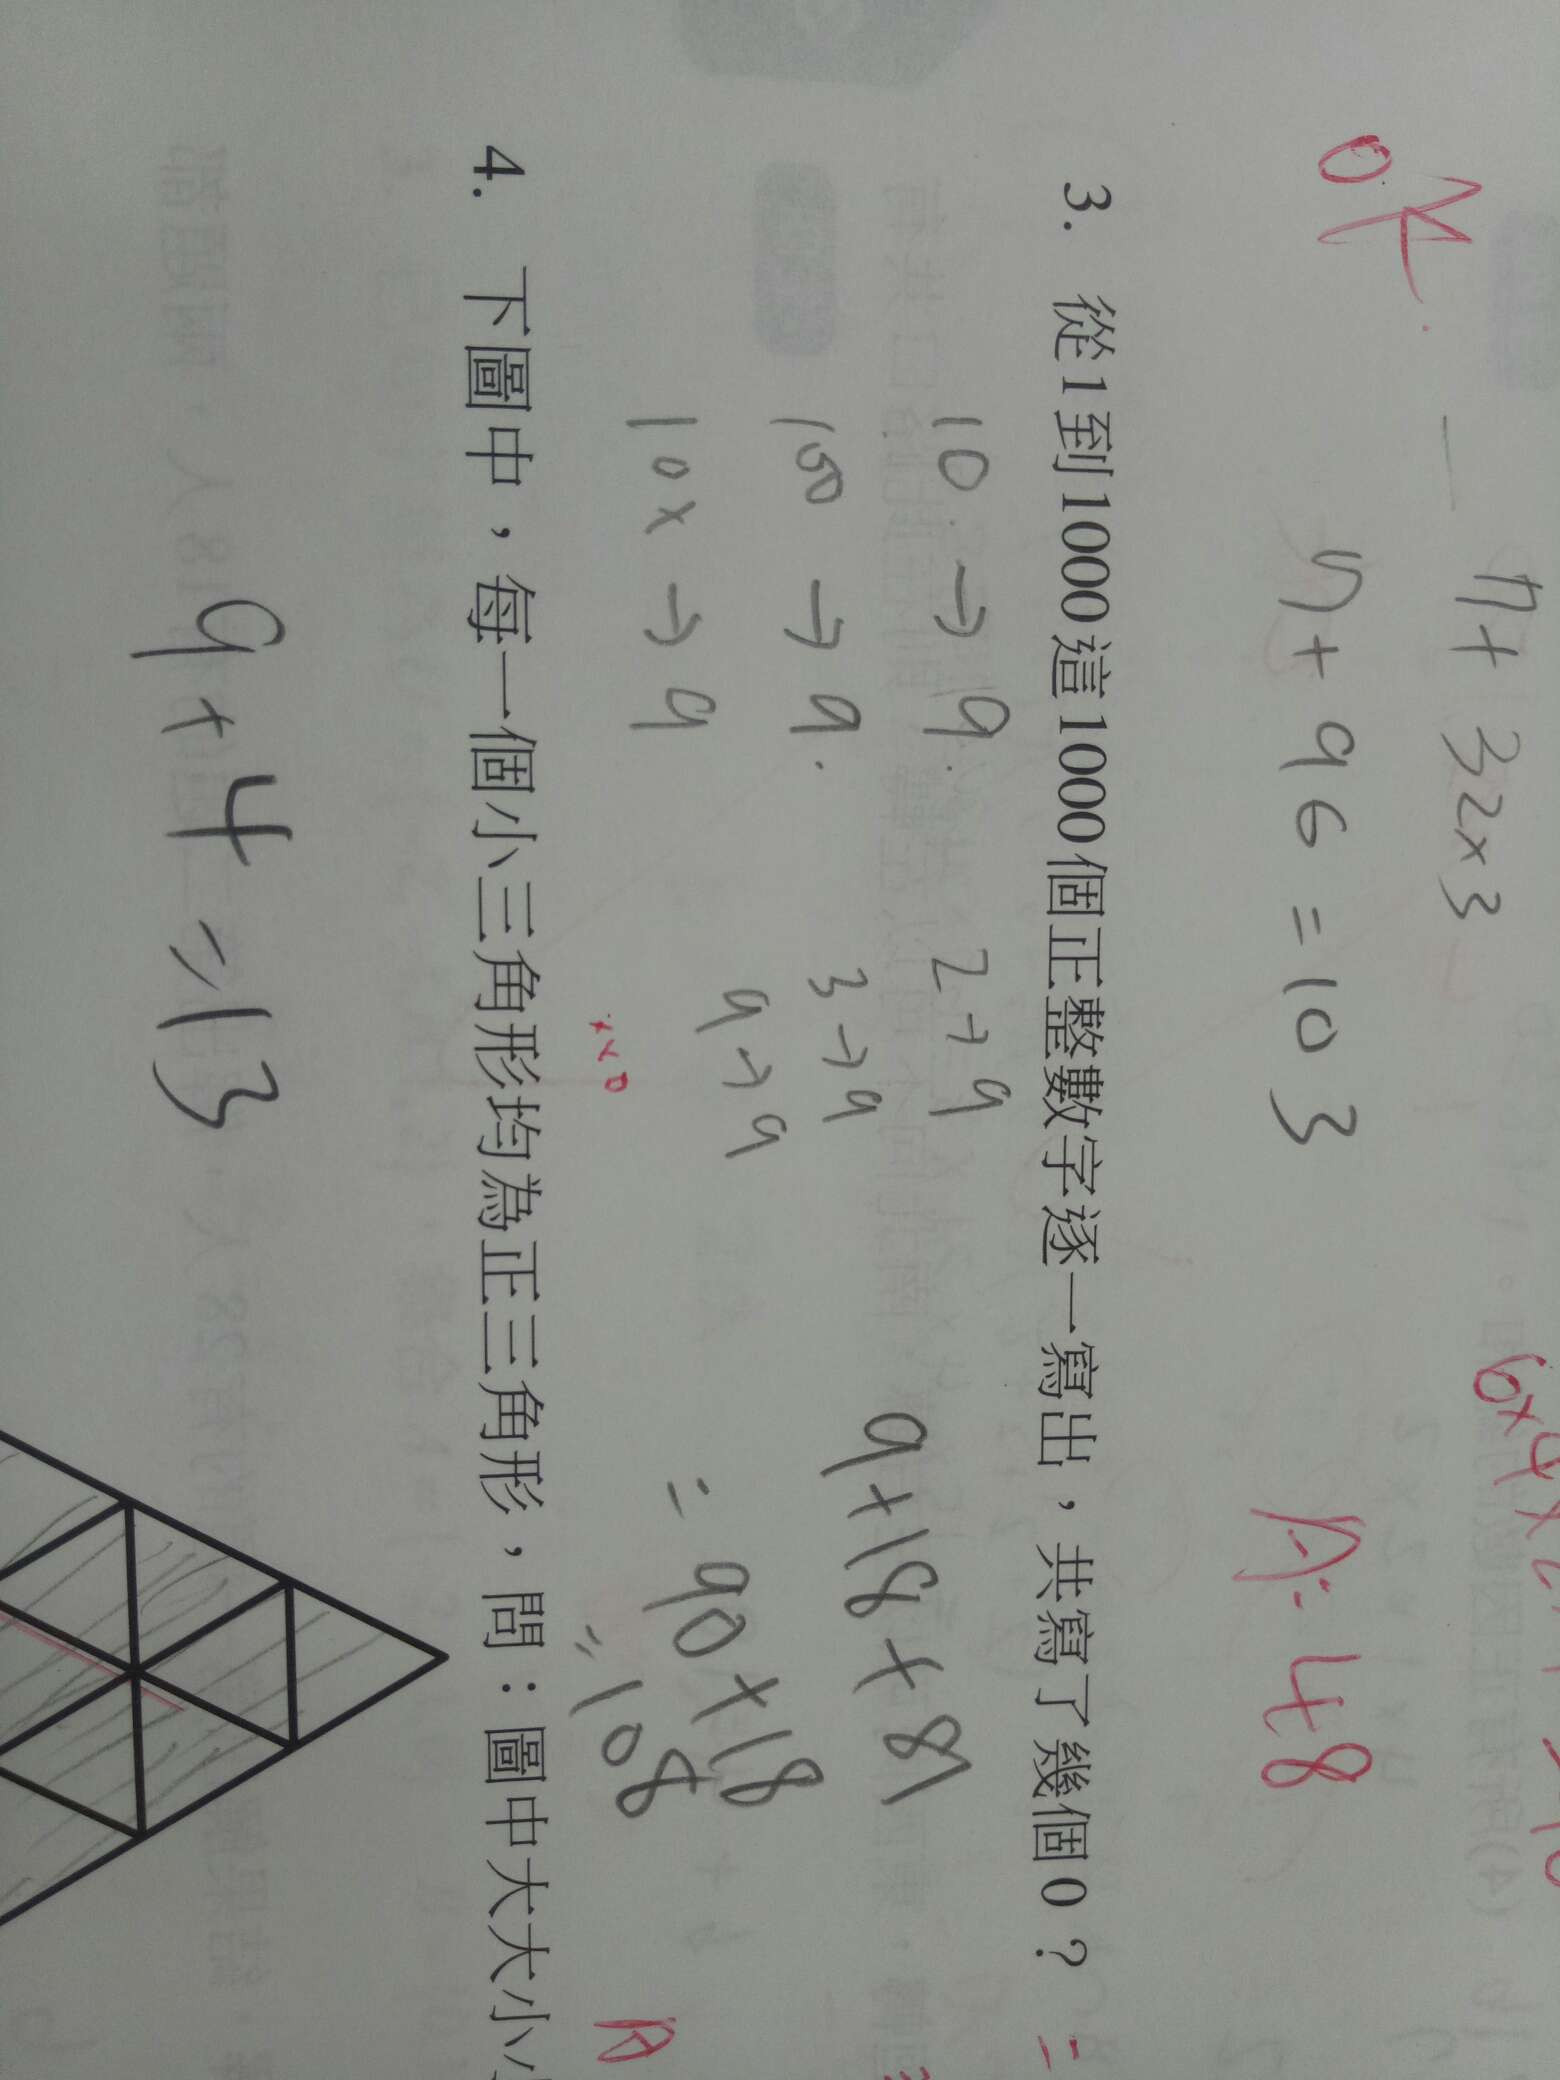 7+32×3
6×4×
OK
7+96=103
A:48
3. 從1到1000這1000個正整數字逐一寫出，共寫了幾個0？
10→9 2→9
100→9 3→9 9+18+81
10×→9 9→9 =90+18
××0 =108
A
4. 下圖中，每一個小三角形均為正三角形，問：圖中大大小
9+4=13